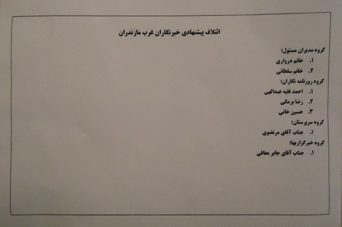 ائتلاف پیشنهادی خبرنگاران غرب مازندران
گروه مدیران مسئول:
۱. خانم درواری
۲. خانم سلطانی
گروه روزنامه نگاران:
۱. احمد فقیه عبدالهی
۲. رضا برمکی
۳. حسین خانی
گروه سرپرستان:
۱. جناب آقای مرتضوی
گروه خبرگزاریها:
۱. جناب آقای جابر معافی